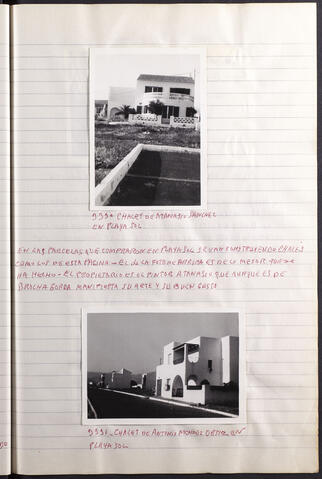 CHALET DE ATANASIO SANCHEZ
EN PLAYA SOL
EN LAS PARCELAS QUE COMPRARON EN PLAYA SOL SE VAN CONSTRUYENDO CHALES
COMO LOS DE ESTA PAGINA - EL DE LA FOTO DE ARRIBA ES DE LO MEJOR QUE SE
HA HECHO - EL PROPIETARIO ES EL PINTOR ATANASIO QUE AUNQUE ES DE
BROCHA GORDA MANIFIESTA SU ARTE Y SU BUEN GUSTO
CHALET DE ANTONIO EN
PLAYA SOL